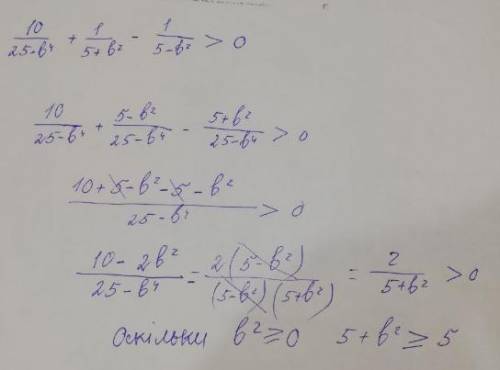 10/(25-b⁴) + 1/(5+b²) - 1/(5-b²) > 0
10/(25-b⁴) + (5-b²)/(25-b⁴) - (5+b²)/(25-b⁴) > 0
(10+5-b²-5-b²)/(25-b⁴) > 0
(10-2b²)/(25-b⁴) = 2(5-b²)/((5-b²)(5+b²)) = 2/(5+b²) > 0
Оскільки b² ≥ 0 5+b² ≥ 5